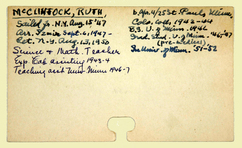 McCLINTOCK, RUTH,
b. Apr. 4/25 St. Paul, Minn.
Sailed fr. N.Y. Aug 15 '47
Colo. Coll, 1942-44
Arr. Sept. 6, 1947-
B.S. U. of Minn. 1946
Ret. N.Y. Aug. 13, 1950
Grad. Stud. U. of Minn. '46-'47
Science & Math. Teacher
Exp. Lab assisting 1943-4
U. of Minn. - 51-52
Teaching ass't Univ. Minn 1946-7